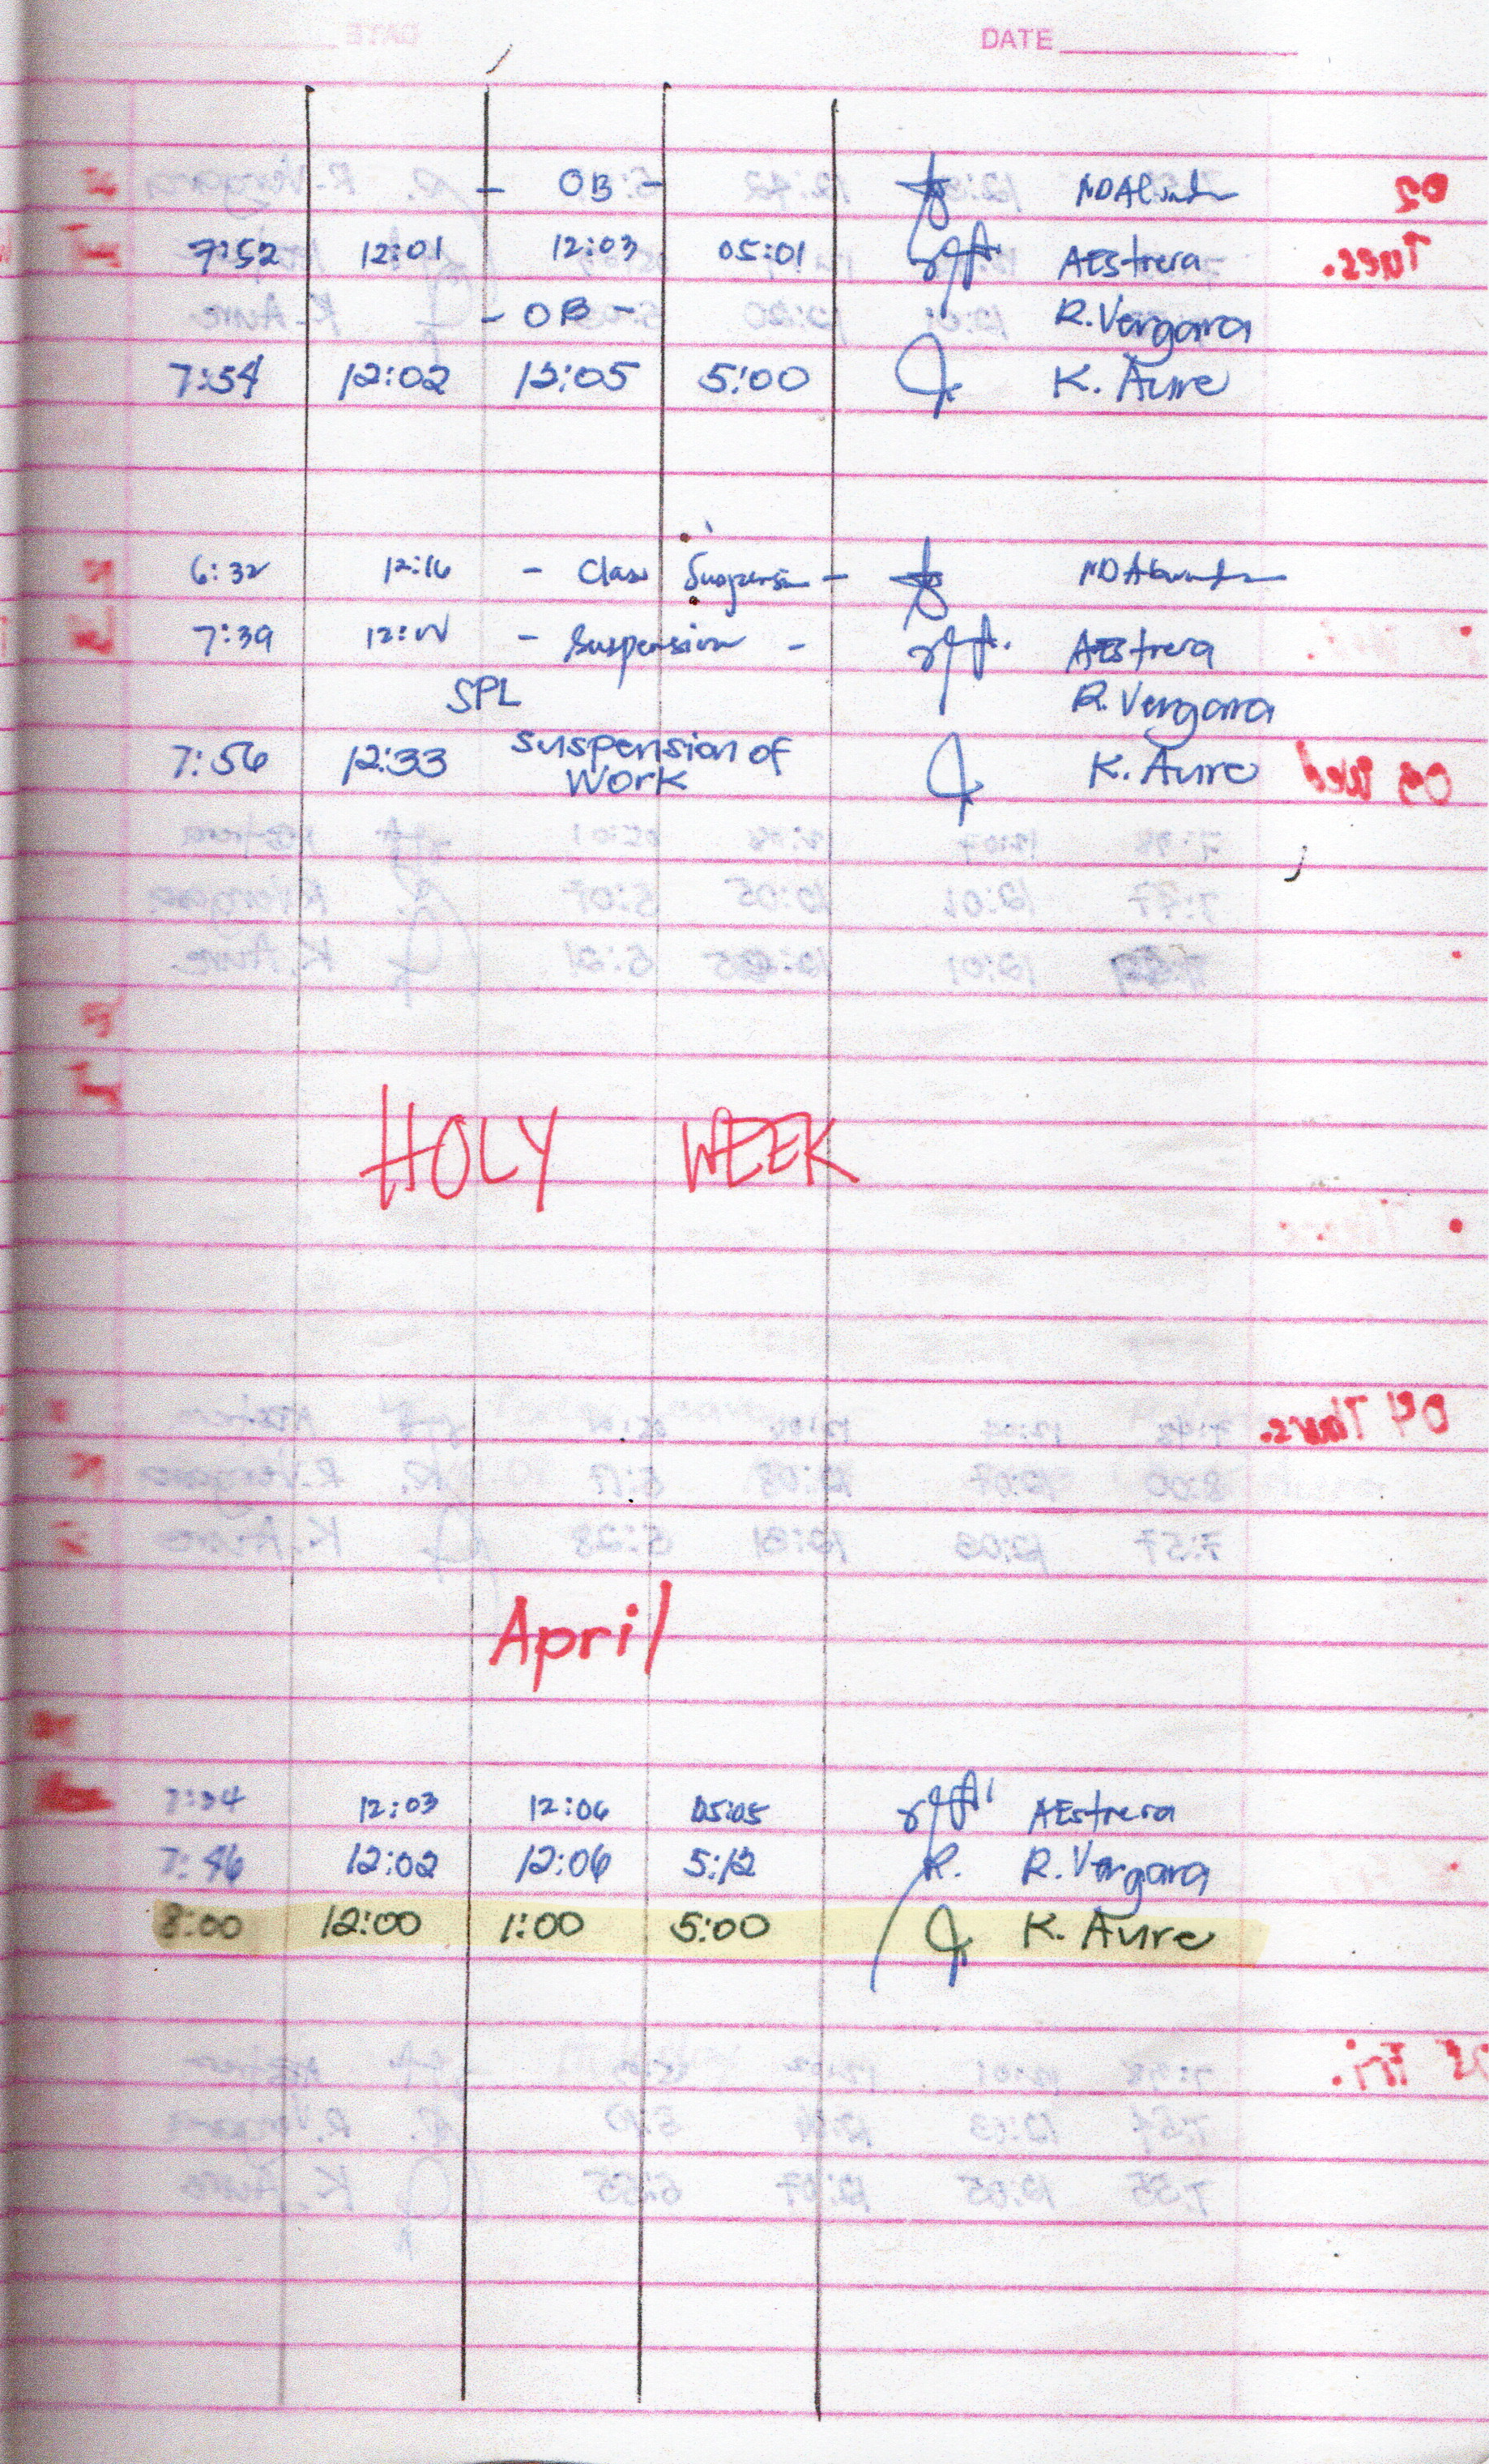 DATE
- OB -
7:52 12:01 12:03 05:01 AEstrera
- OB - R. Vergara
7:54 12:02 12:05 5:00 K. Aure
6:32 12:16 - Class Suspension -
7:39 - Suspension - AEstrera
SPL R. Vergara
7:56 12:33 suspension of K. Aure
Work
HOLY WEEK
April
7:34 12:03 12:06 05:05 AEstrera
7:46 12:02 12:06 5:12 R. R. Vergara
8:00 12:00 1:00 5:00 K. Aure